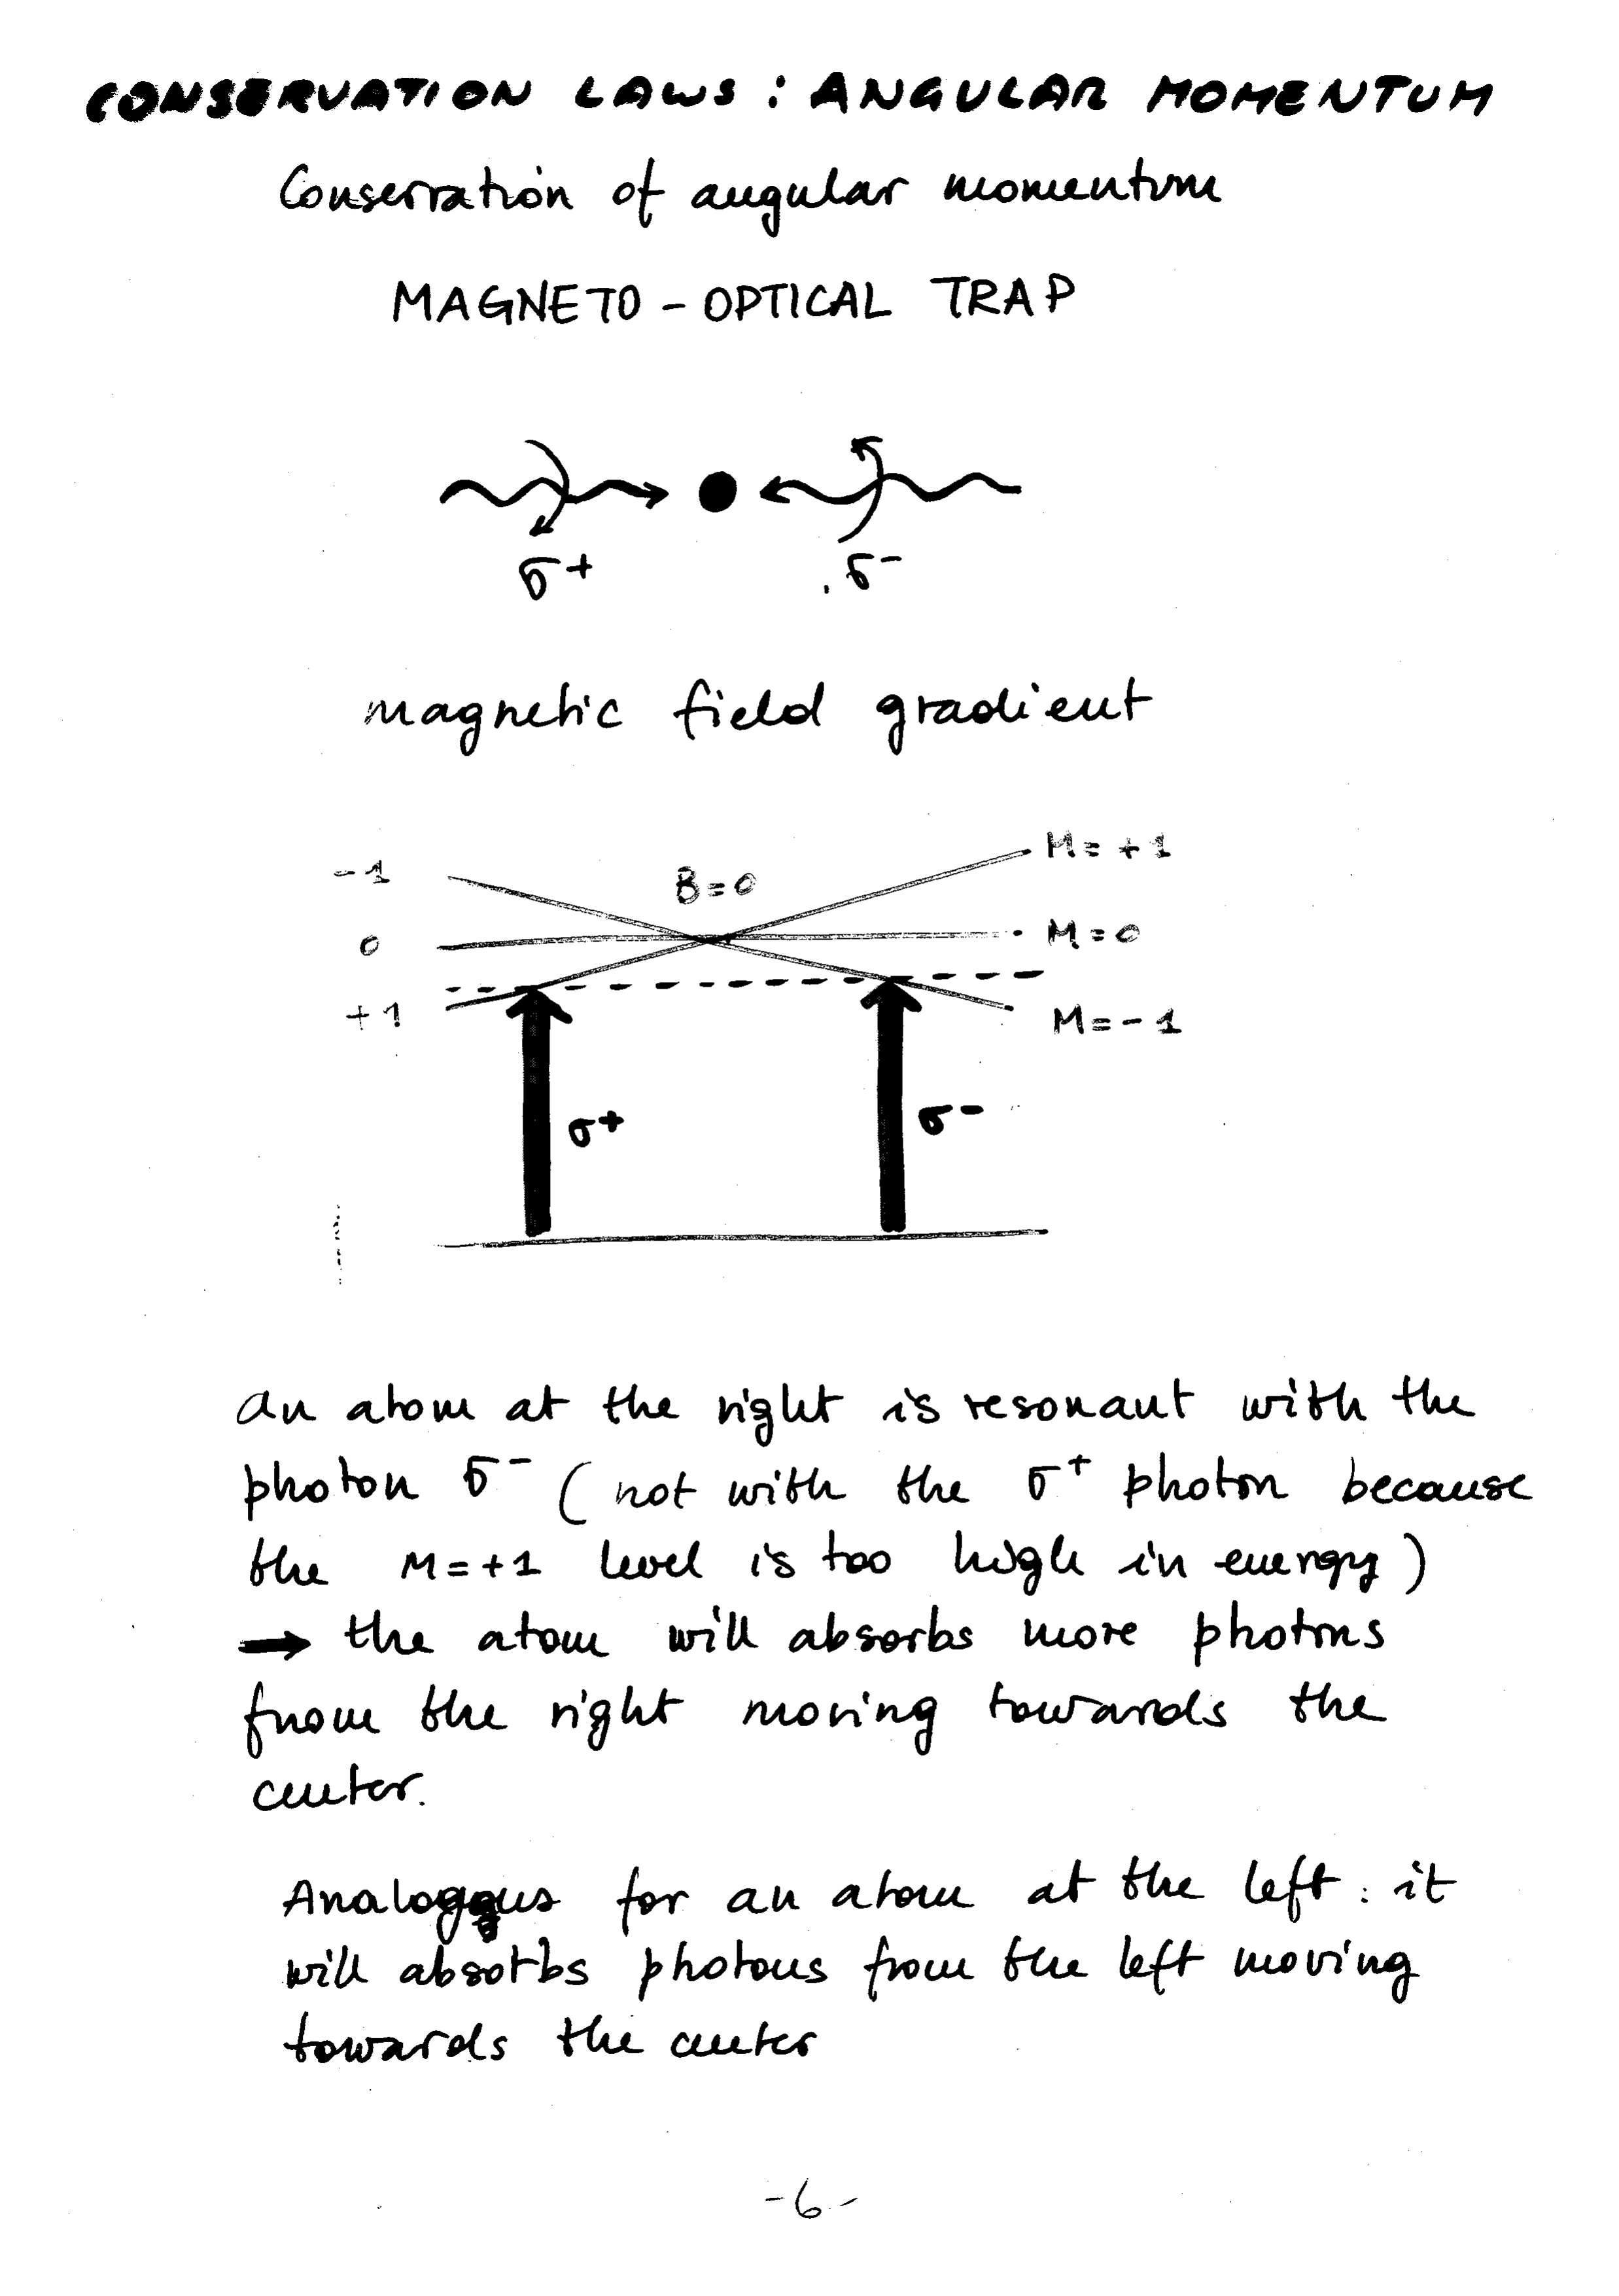 CONSERVATION LAWS : ANGULAR MOMENTUM
Conservation of angular momentum
MAGNETO - OPTICAL TRAP
σ+ σ-
magnetic field gradient
-1 B=0 M=+1
0 M=0
+1 M=-1
σ+ σ-
an atom at the right is resonant with the
photon σ- (not with the σ+ photon because
the M=+1 level is too high in energy)
→ the atom will absorbs more photons
from the right moving towards the
center.
Analogous for an atom at the left : it
will absorbs photons from the left moving
towards the center
-6-